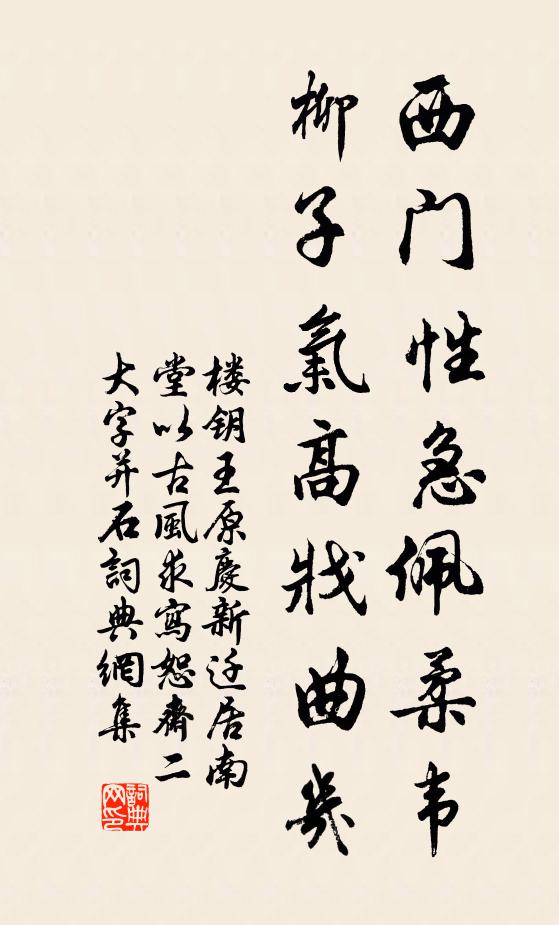 西门性急佩柔韦
柳子氣高戕曲幾
楼钥王原慶新迁居南
堂以古風求寫恕齋二
大字并石詞典網集
詞典网印